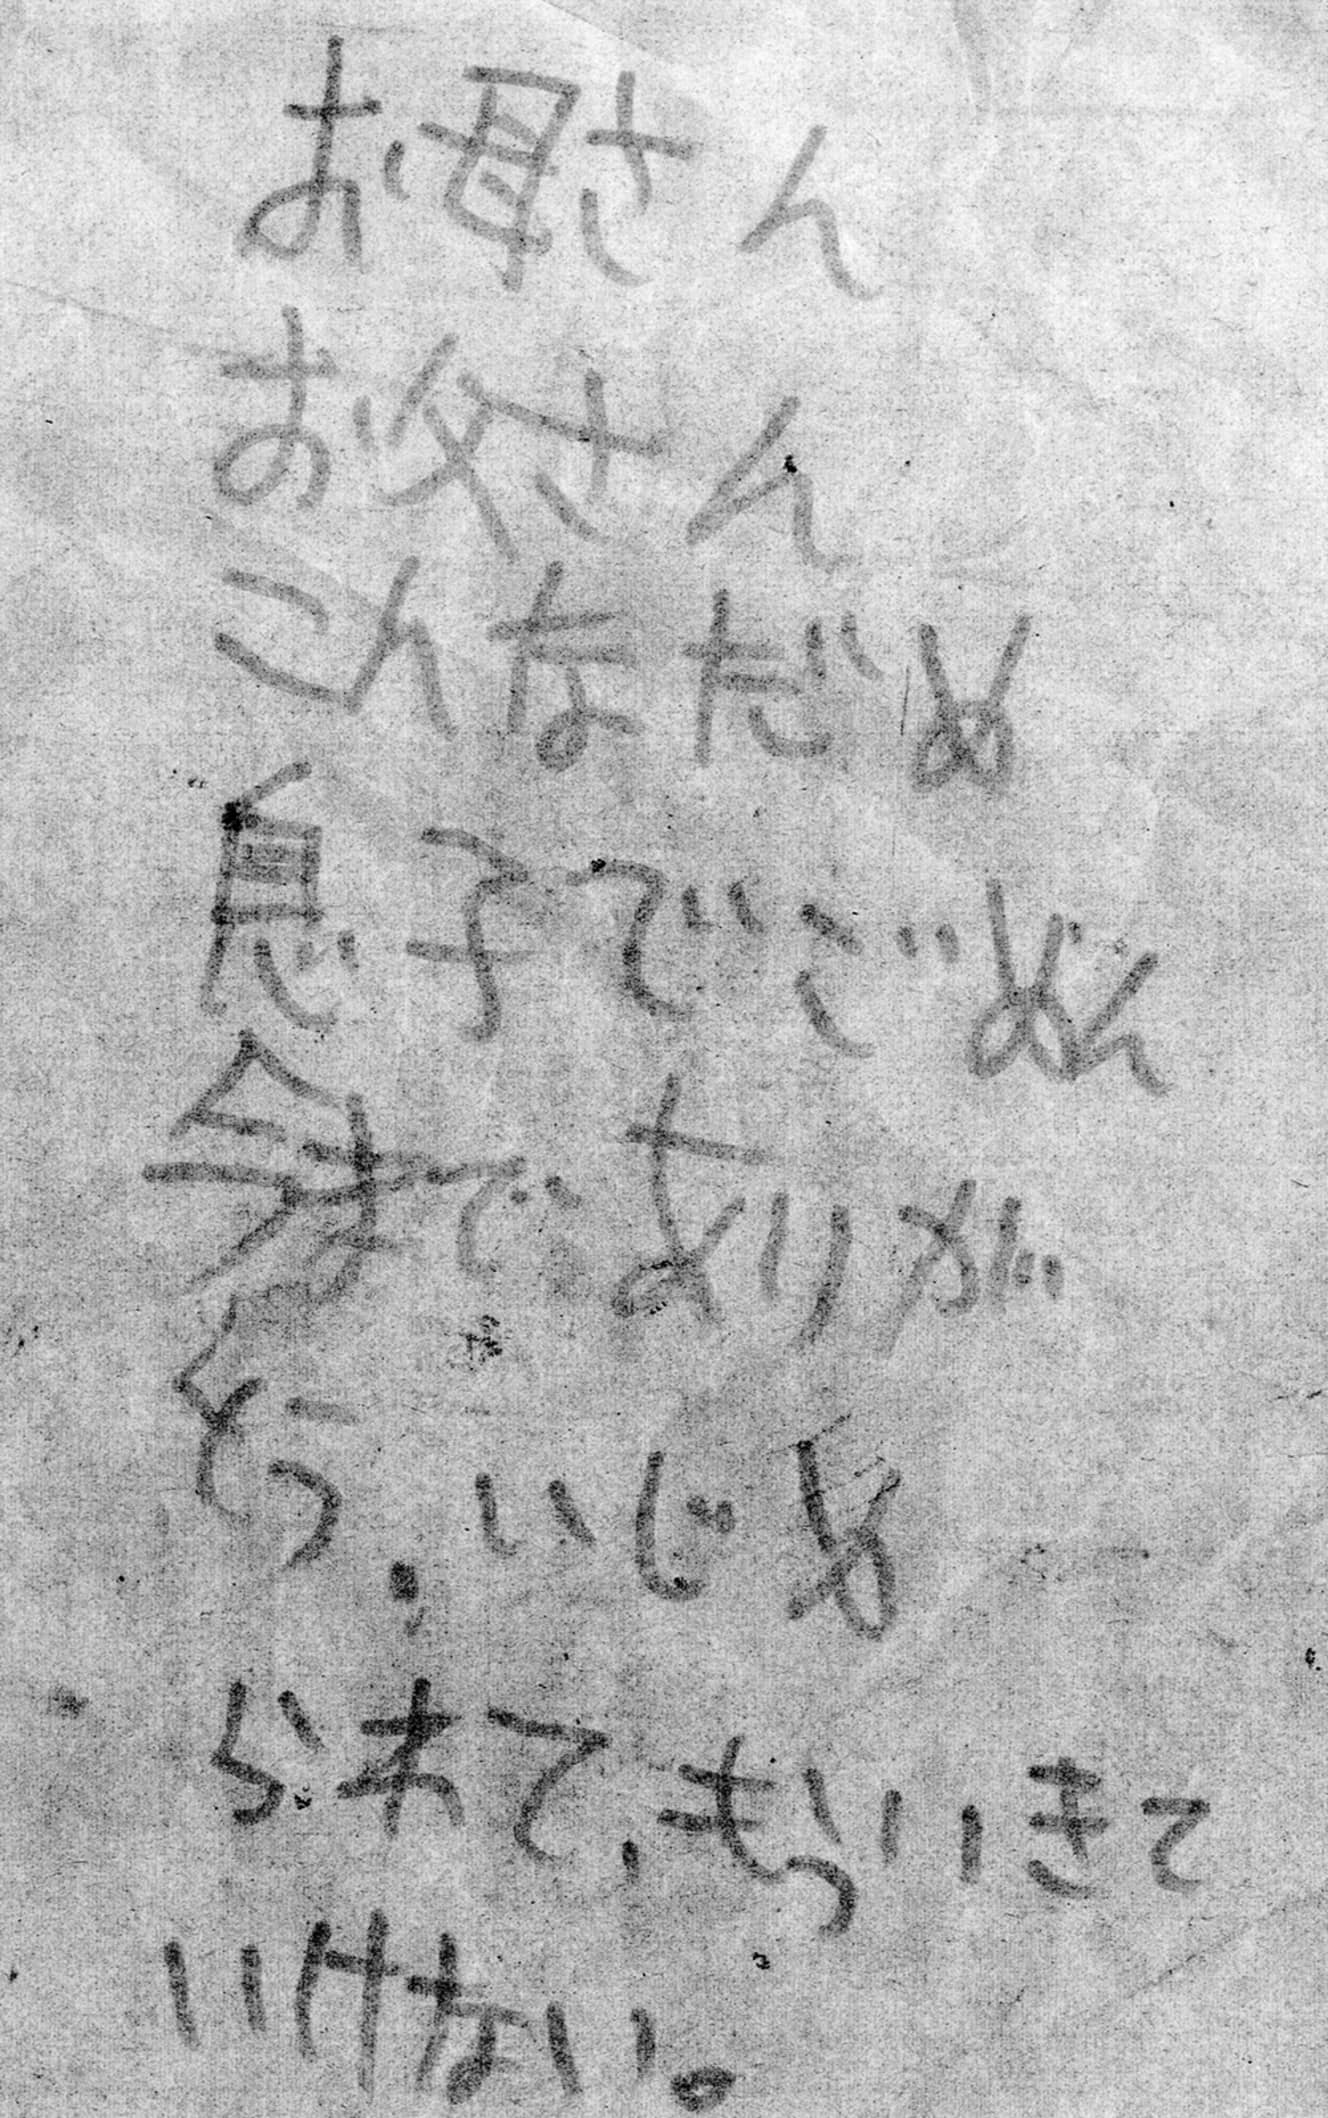 お母さん
お父さん
こんなだめ
息子でごめん
今まで ありが
とう。いじめ
られて、もういきて
いけない。